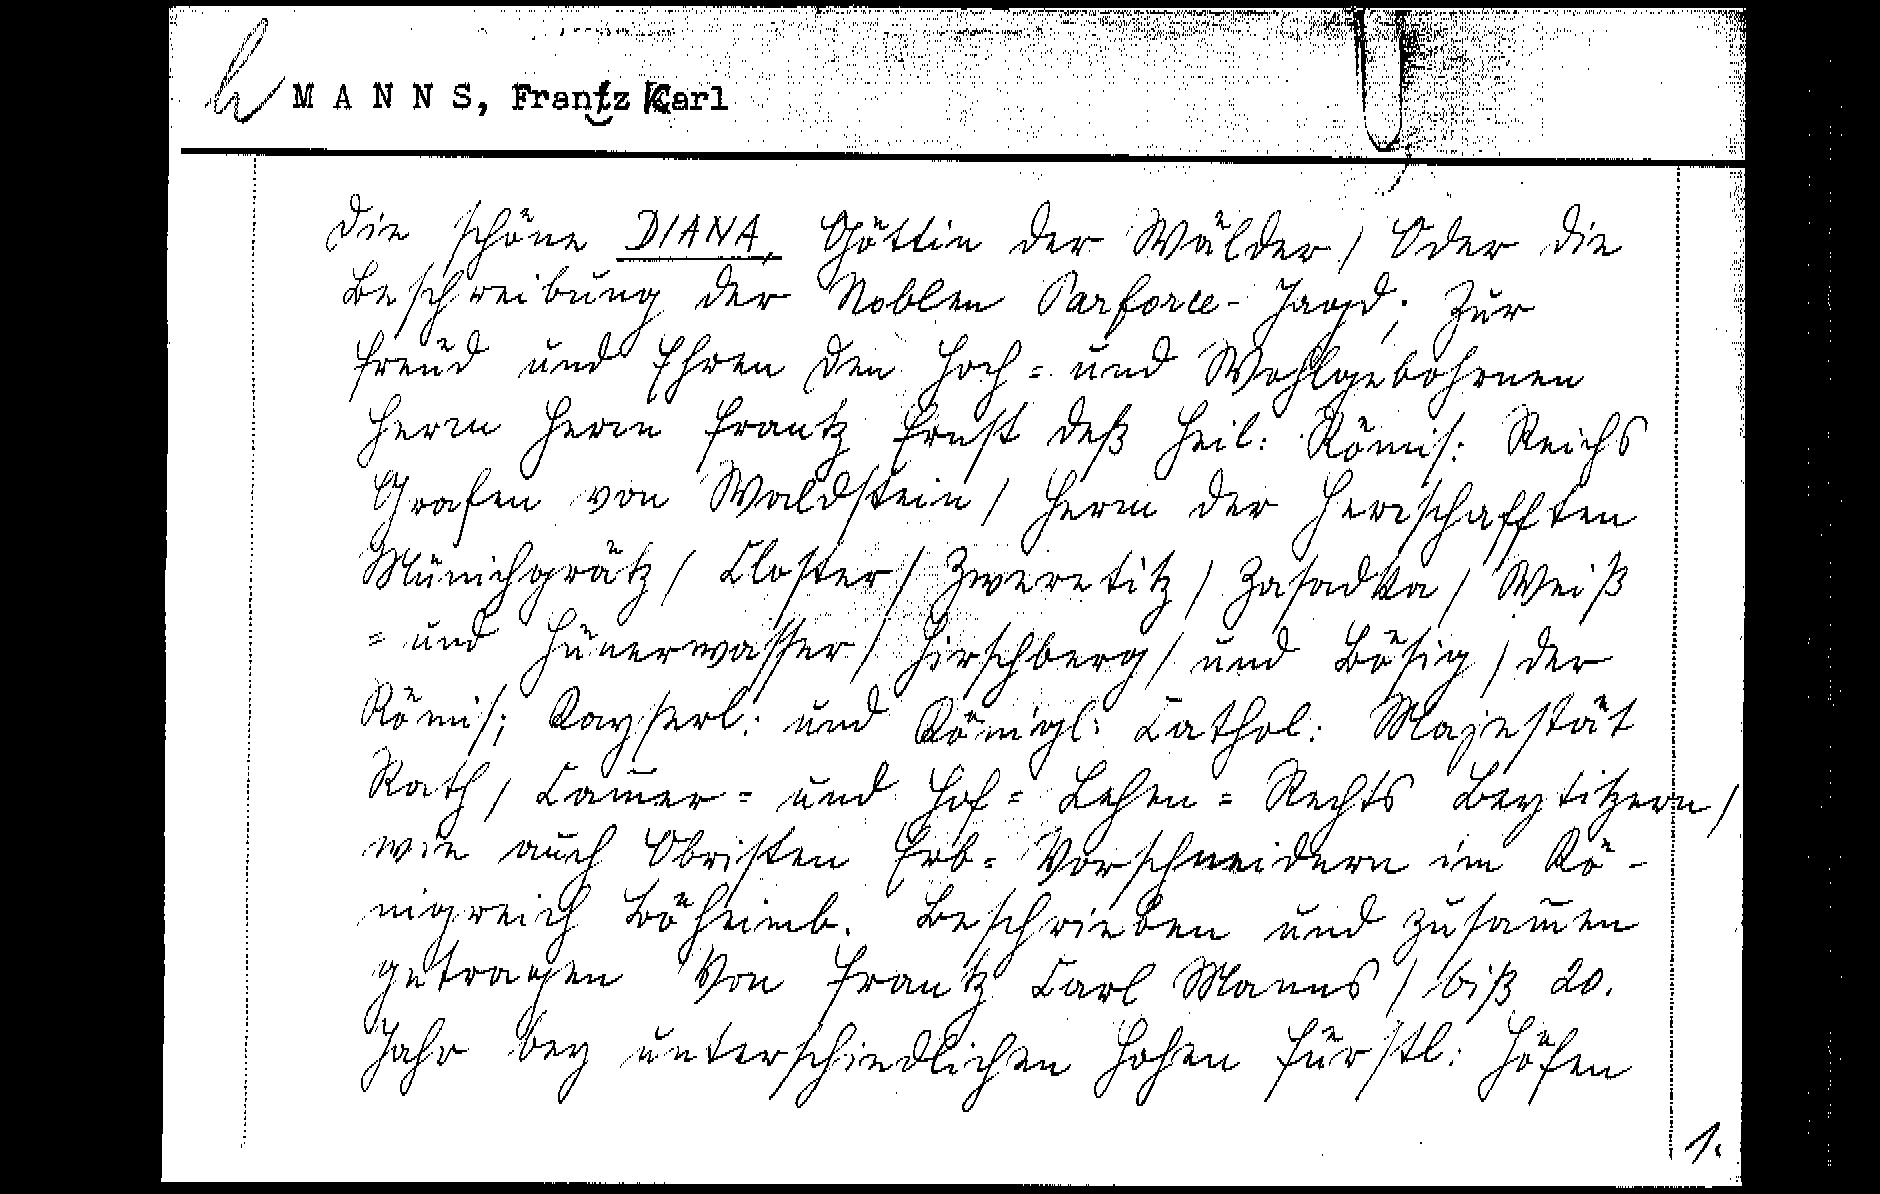 h MANNS, Frantz Carl
Die schöne DIANA, Göttin der Wälder / Oder die
Beschreibung der Noblen Parforce- Jagd; Zur
Freud und Ehren den Hoch = und Wohlgebohrnen
Herrn Herrn Frantz Ernst deß Heil: Römis: Reichs
Grafen von Waldstein / Herrn der Herrschafften
Münichgrätz / Closter / Zweretitz / Zasadka / Weiß
= und Hünerwasser / Hirschberg / und Bösig / der
Römis; Kayserl: und Königl: Cathol: Majestät
Rath / Cam̅er = und Hof = Lehen = Rechts Beysitzern /
wie auch Obristen Erb = Vorschneidern im Kö-
nigreich Böheimb. Beschrieben und zusam̅en
getragen Von Frantz Carl Manns / biß 20.
Jahr bey unterschiedlichen Hohen Fürstl: Höfen
1.